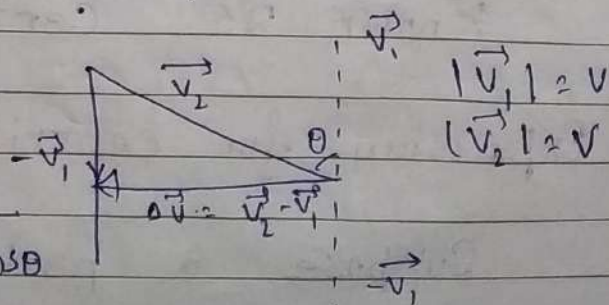 $\vec{V_1}$
$\vec{V_2}$
$|\vec{V_1}| = V$
$|\vec{V_2}| = V$
θ
$-\vec{V_1}$
$\Delta\vec{V} = \vec{V_2} - \vec{V_1}$
osθ
$-\vec{V_1}$